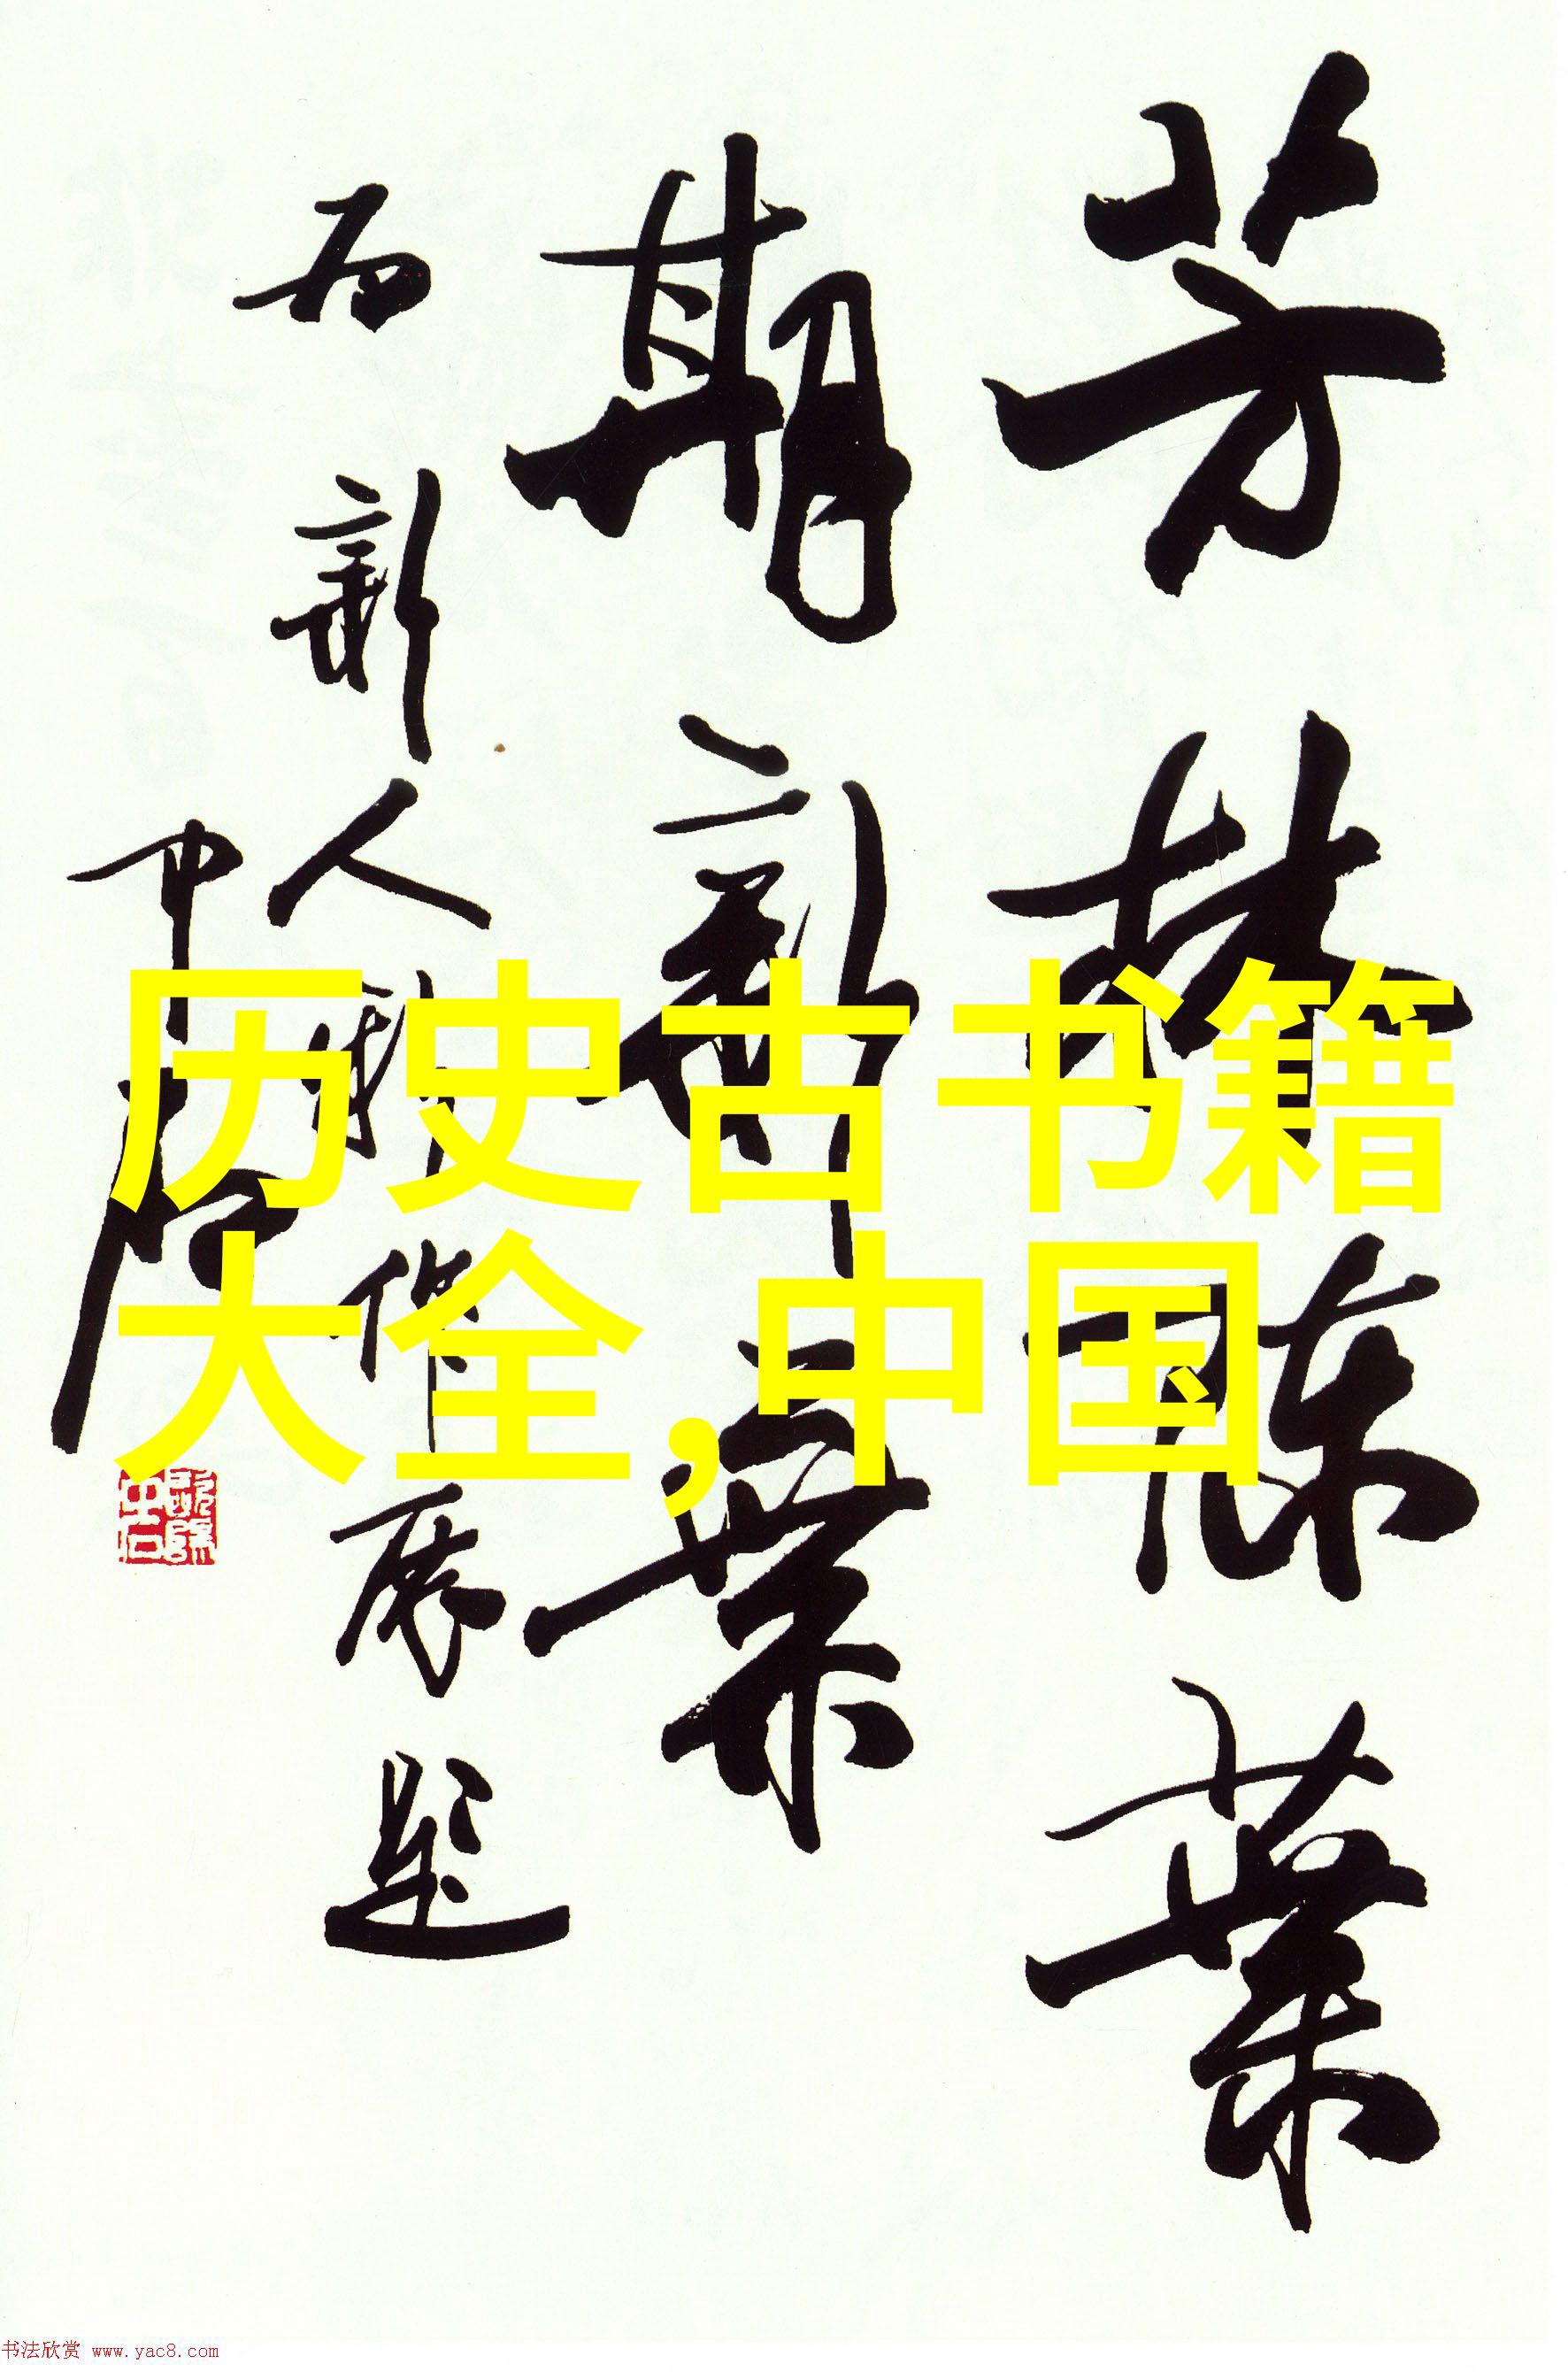 芳林陈叶
期新叶
为新人新作展题
中石
历史古书籍
大全,中国
书法欣赏 www.yac8.com